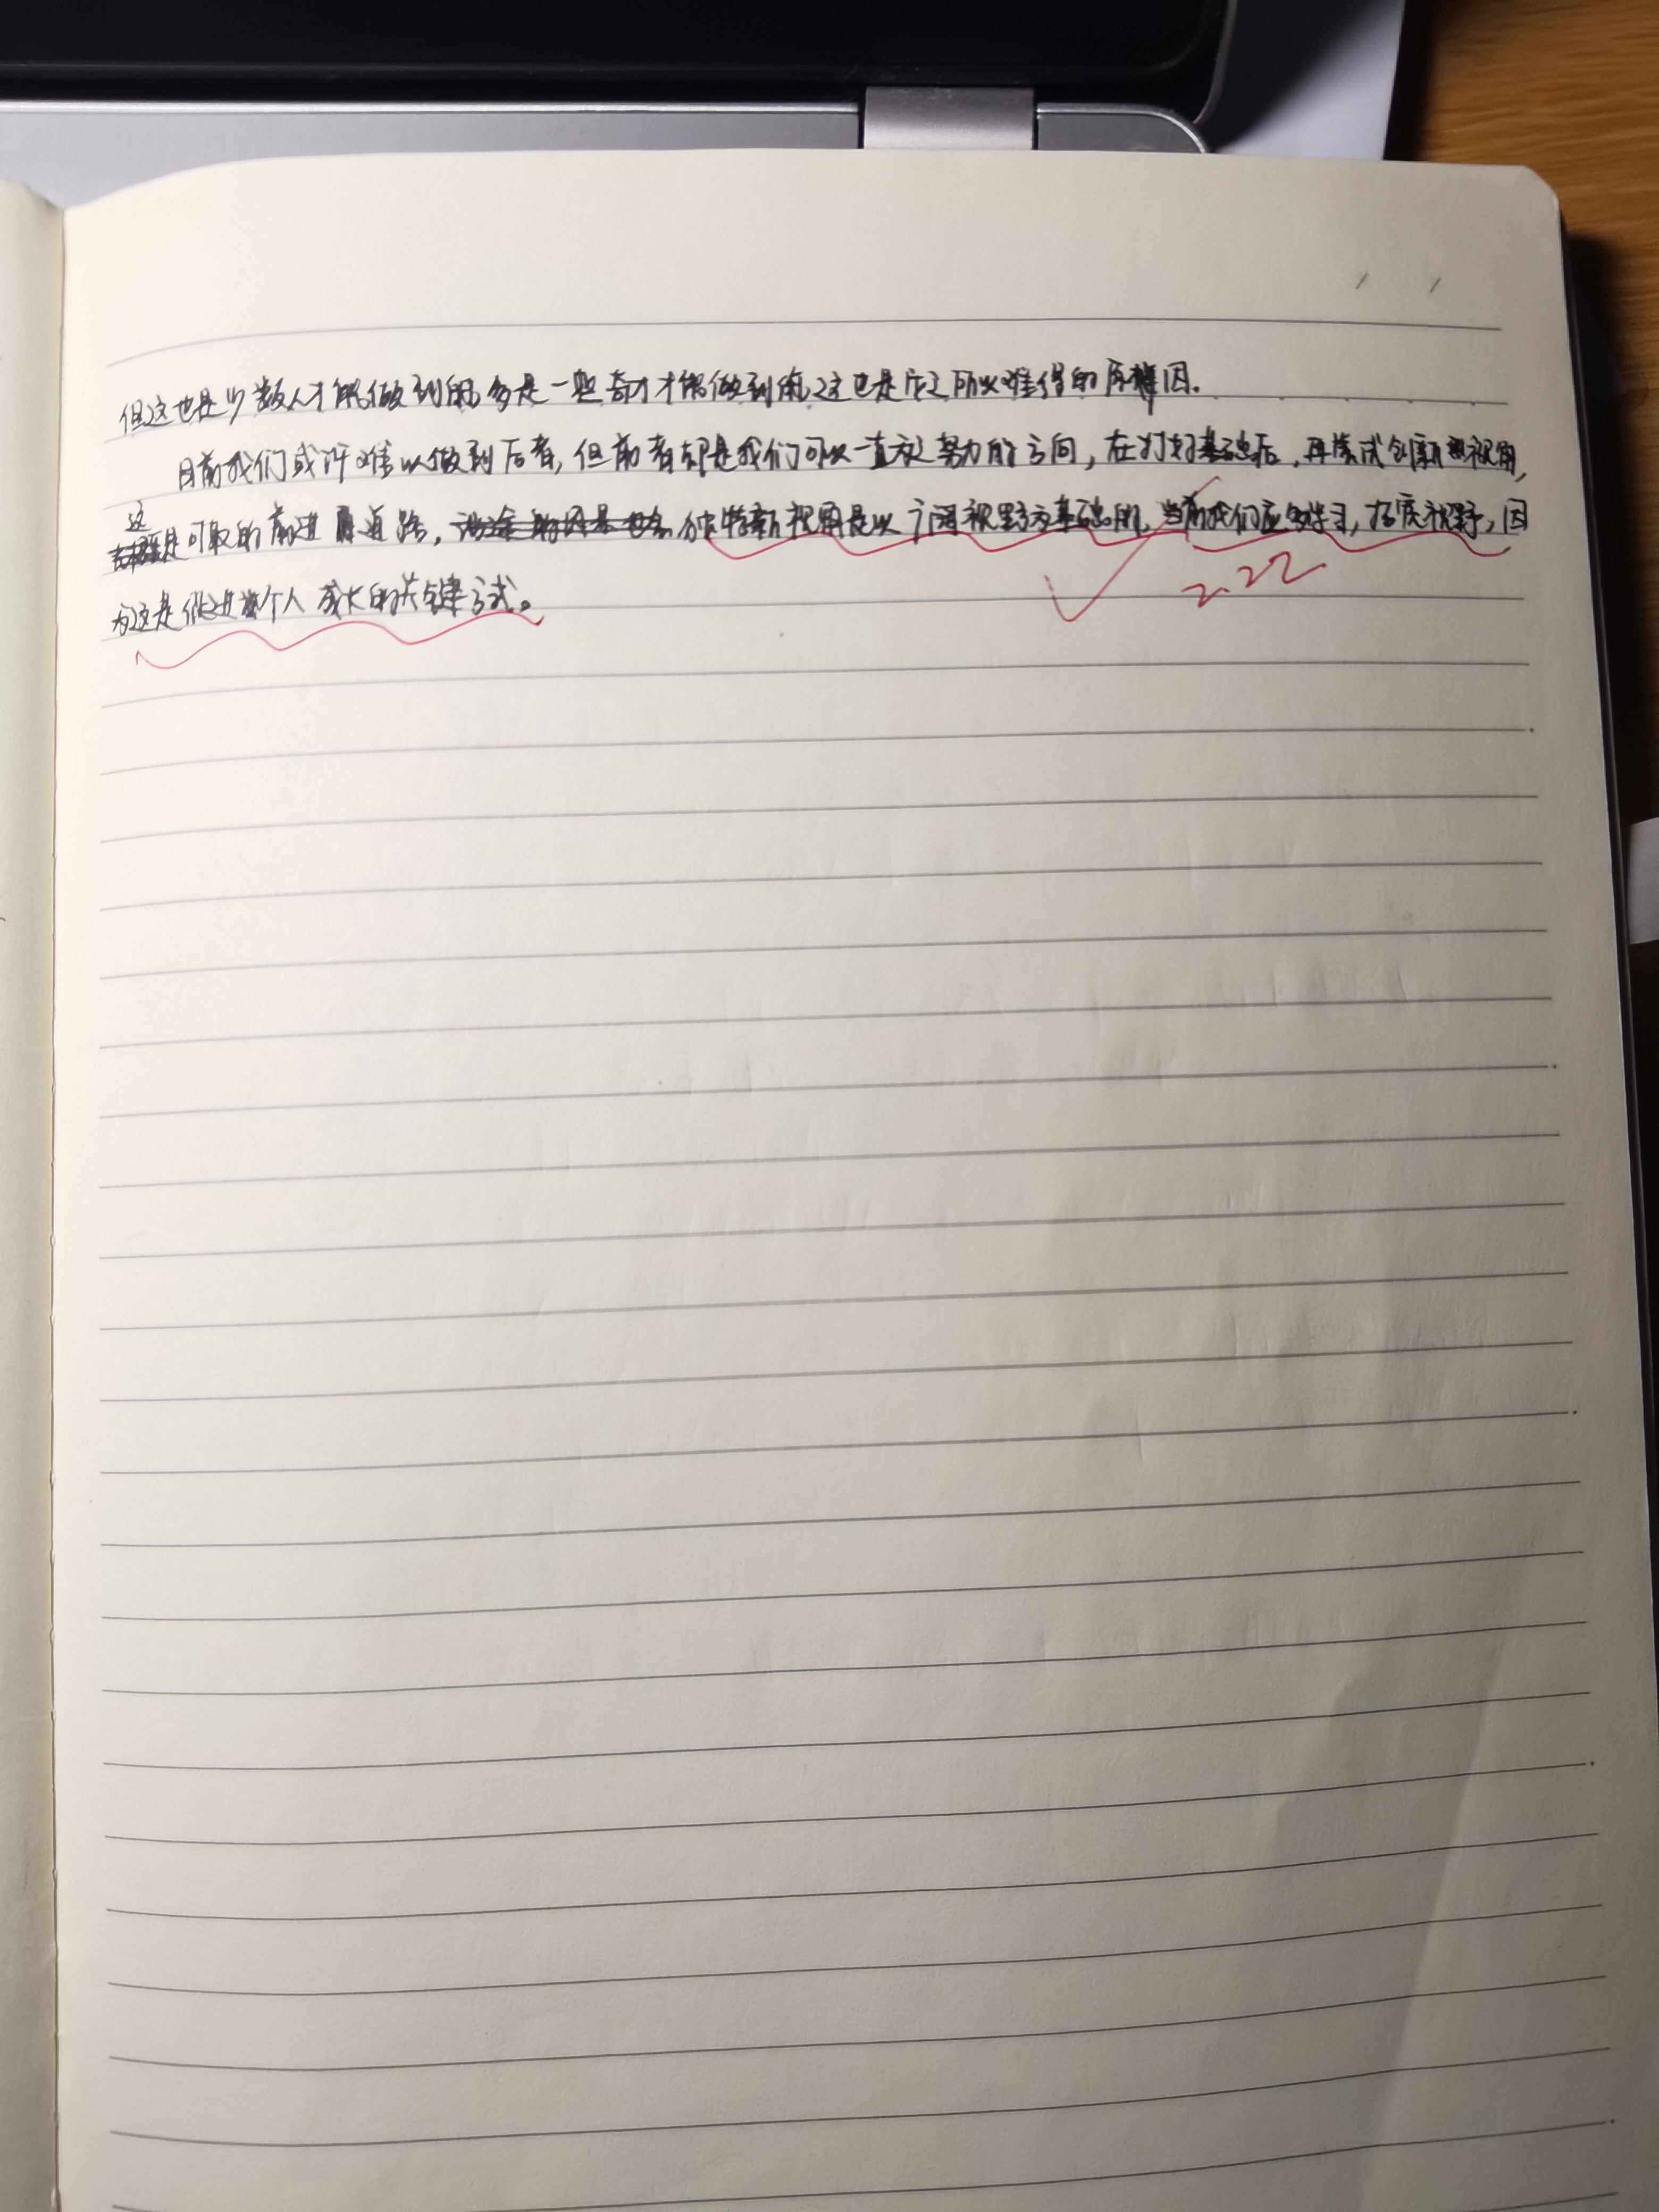 但这也是少数人才能做到的,多是一些奇才才能做到的,这也是它之所以难得的原因.
目前我们或许难以做到后者,但前者却是我们可以一直努力的方向,在打好基础后,再尝试创新视角,
这是可取的前进道路,独特新视角是以广阔视野为基础的,当前我们应多学习,拓宽视野,因
为这是促进个人成长的关键方式。
2.22